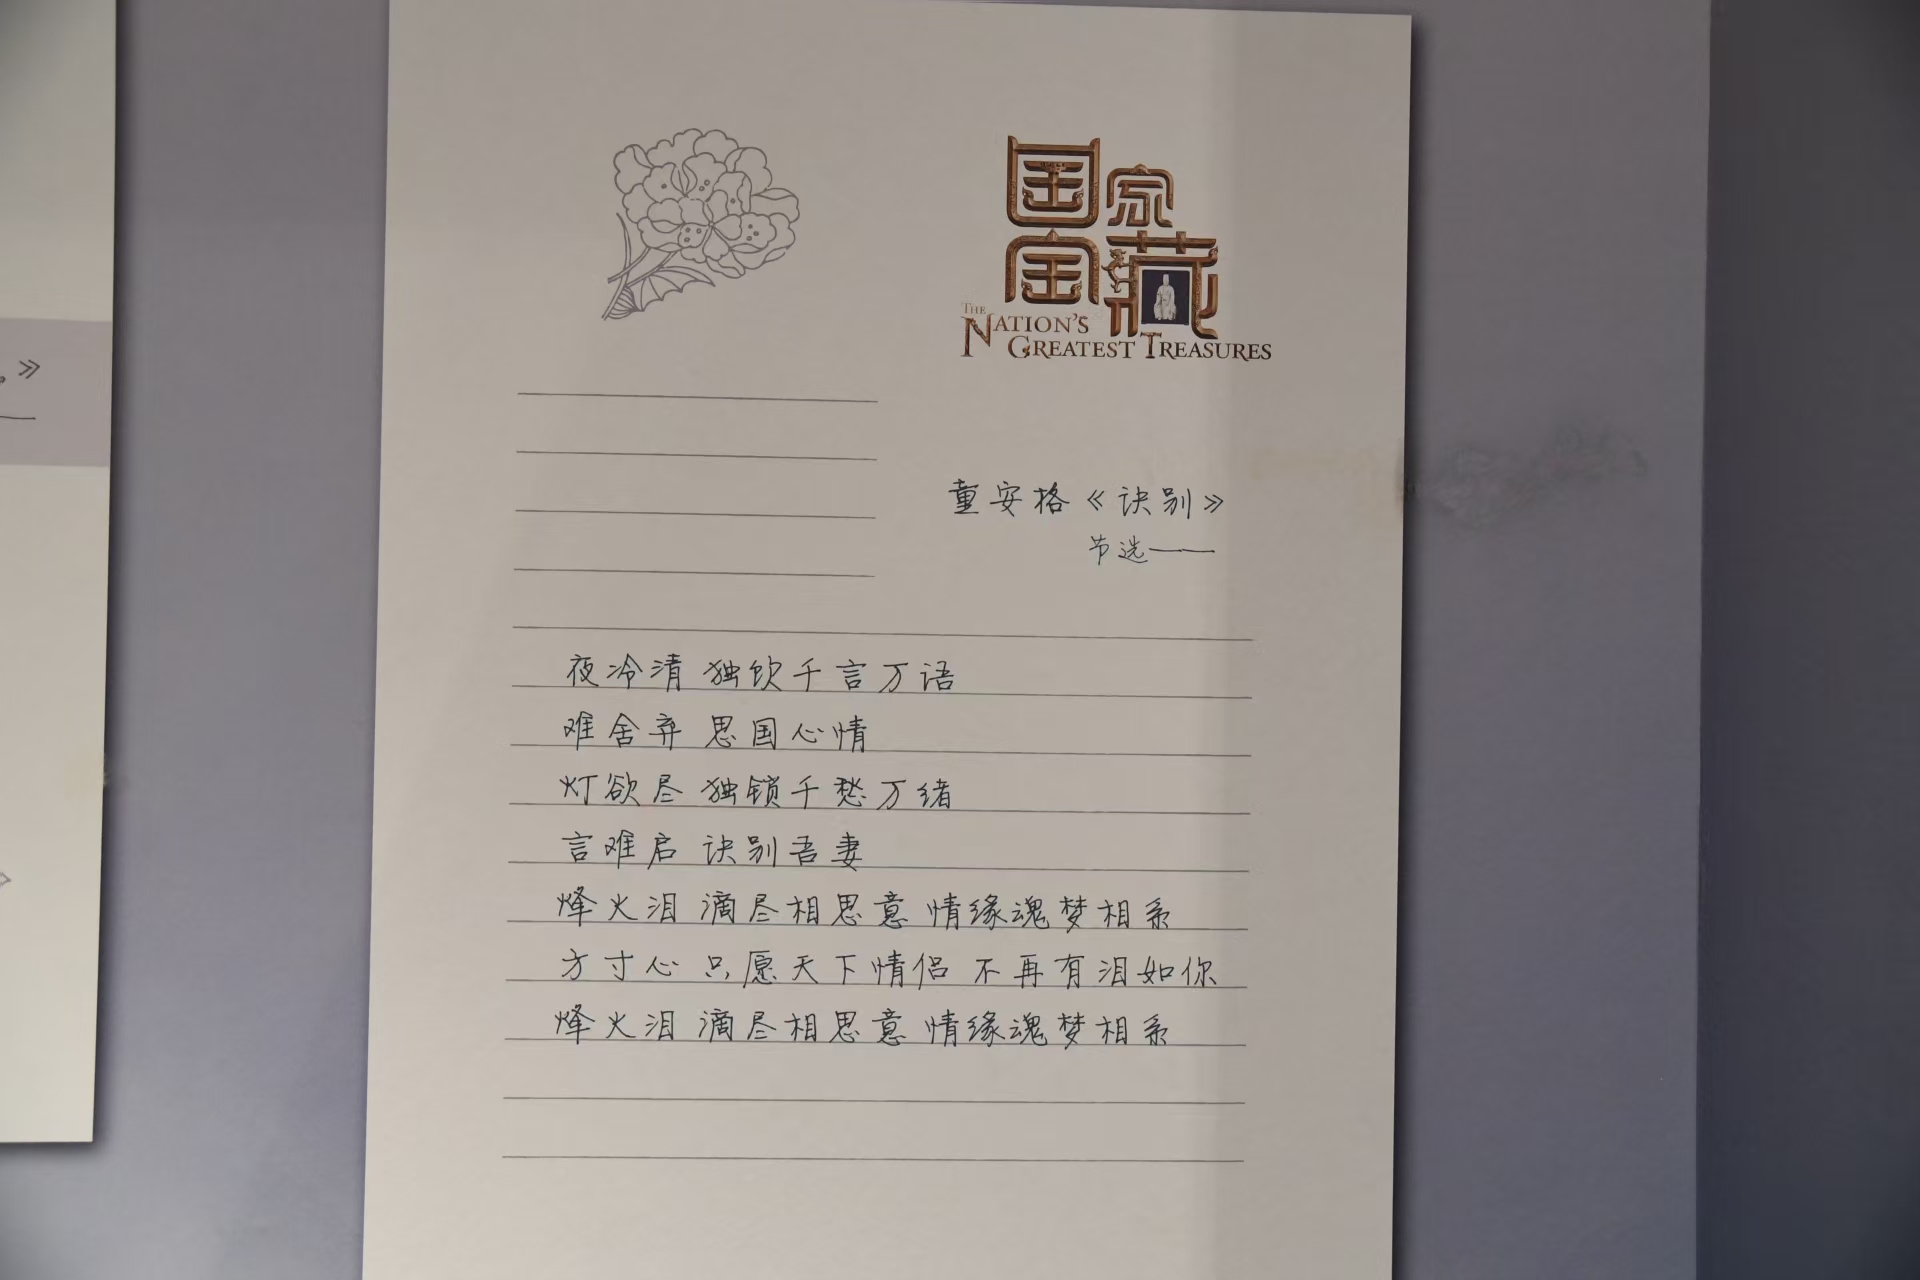 国家
宝藏
THE
NATION'S
GREATEST TREASURES
。》
童安格《诀别》
节选——
夜冷清 独饮千言万语
难舍弃 思国心情
灯欲尽 独锁千愁万绪
言难启 诀别吾妻
烽火泪 滴尽相思意 情缘魂梦相系
方寸心 只愿天下情侣 不再有泪如你
烽火泪 滴尽相思意 情缘魂梦相系